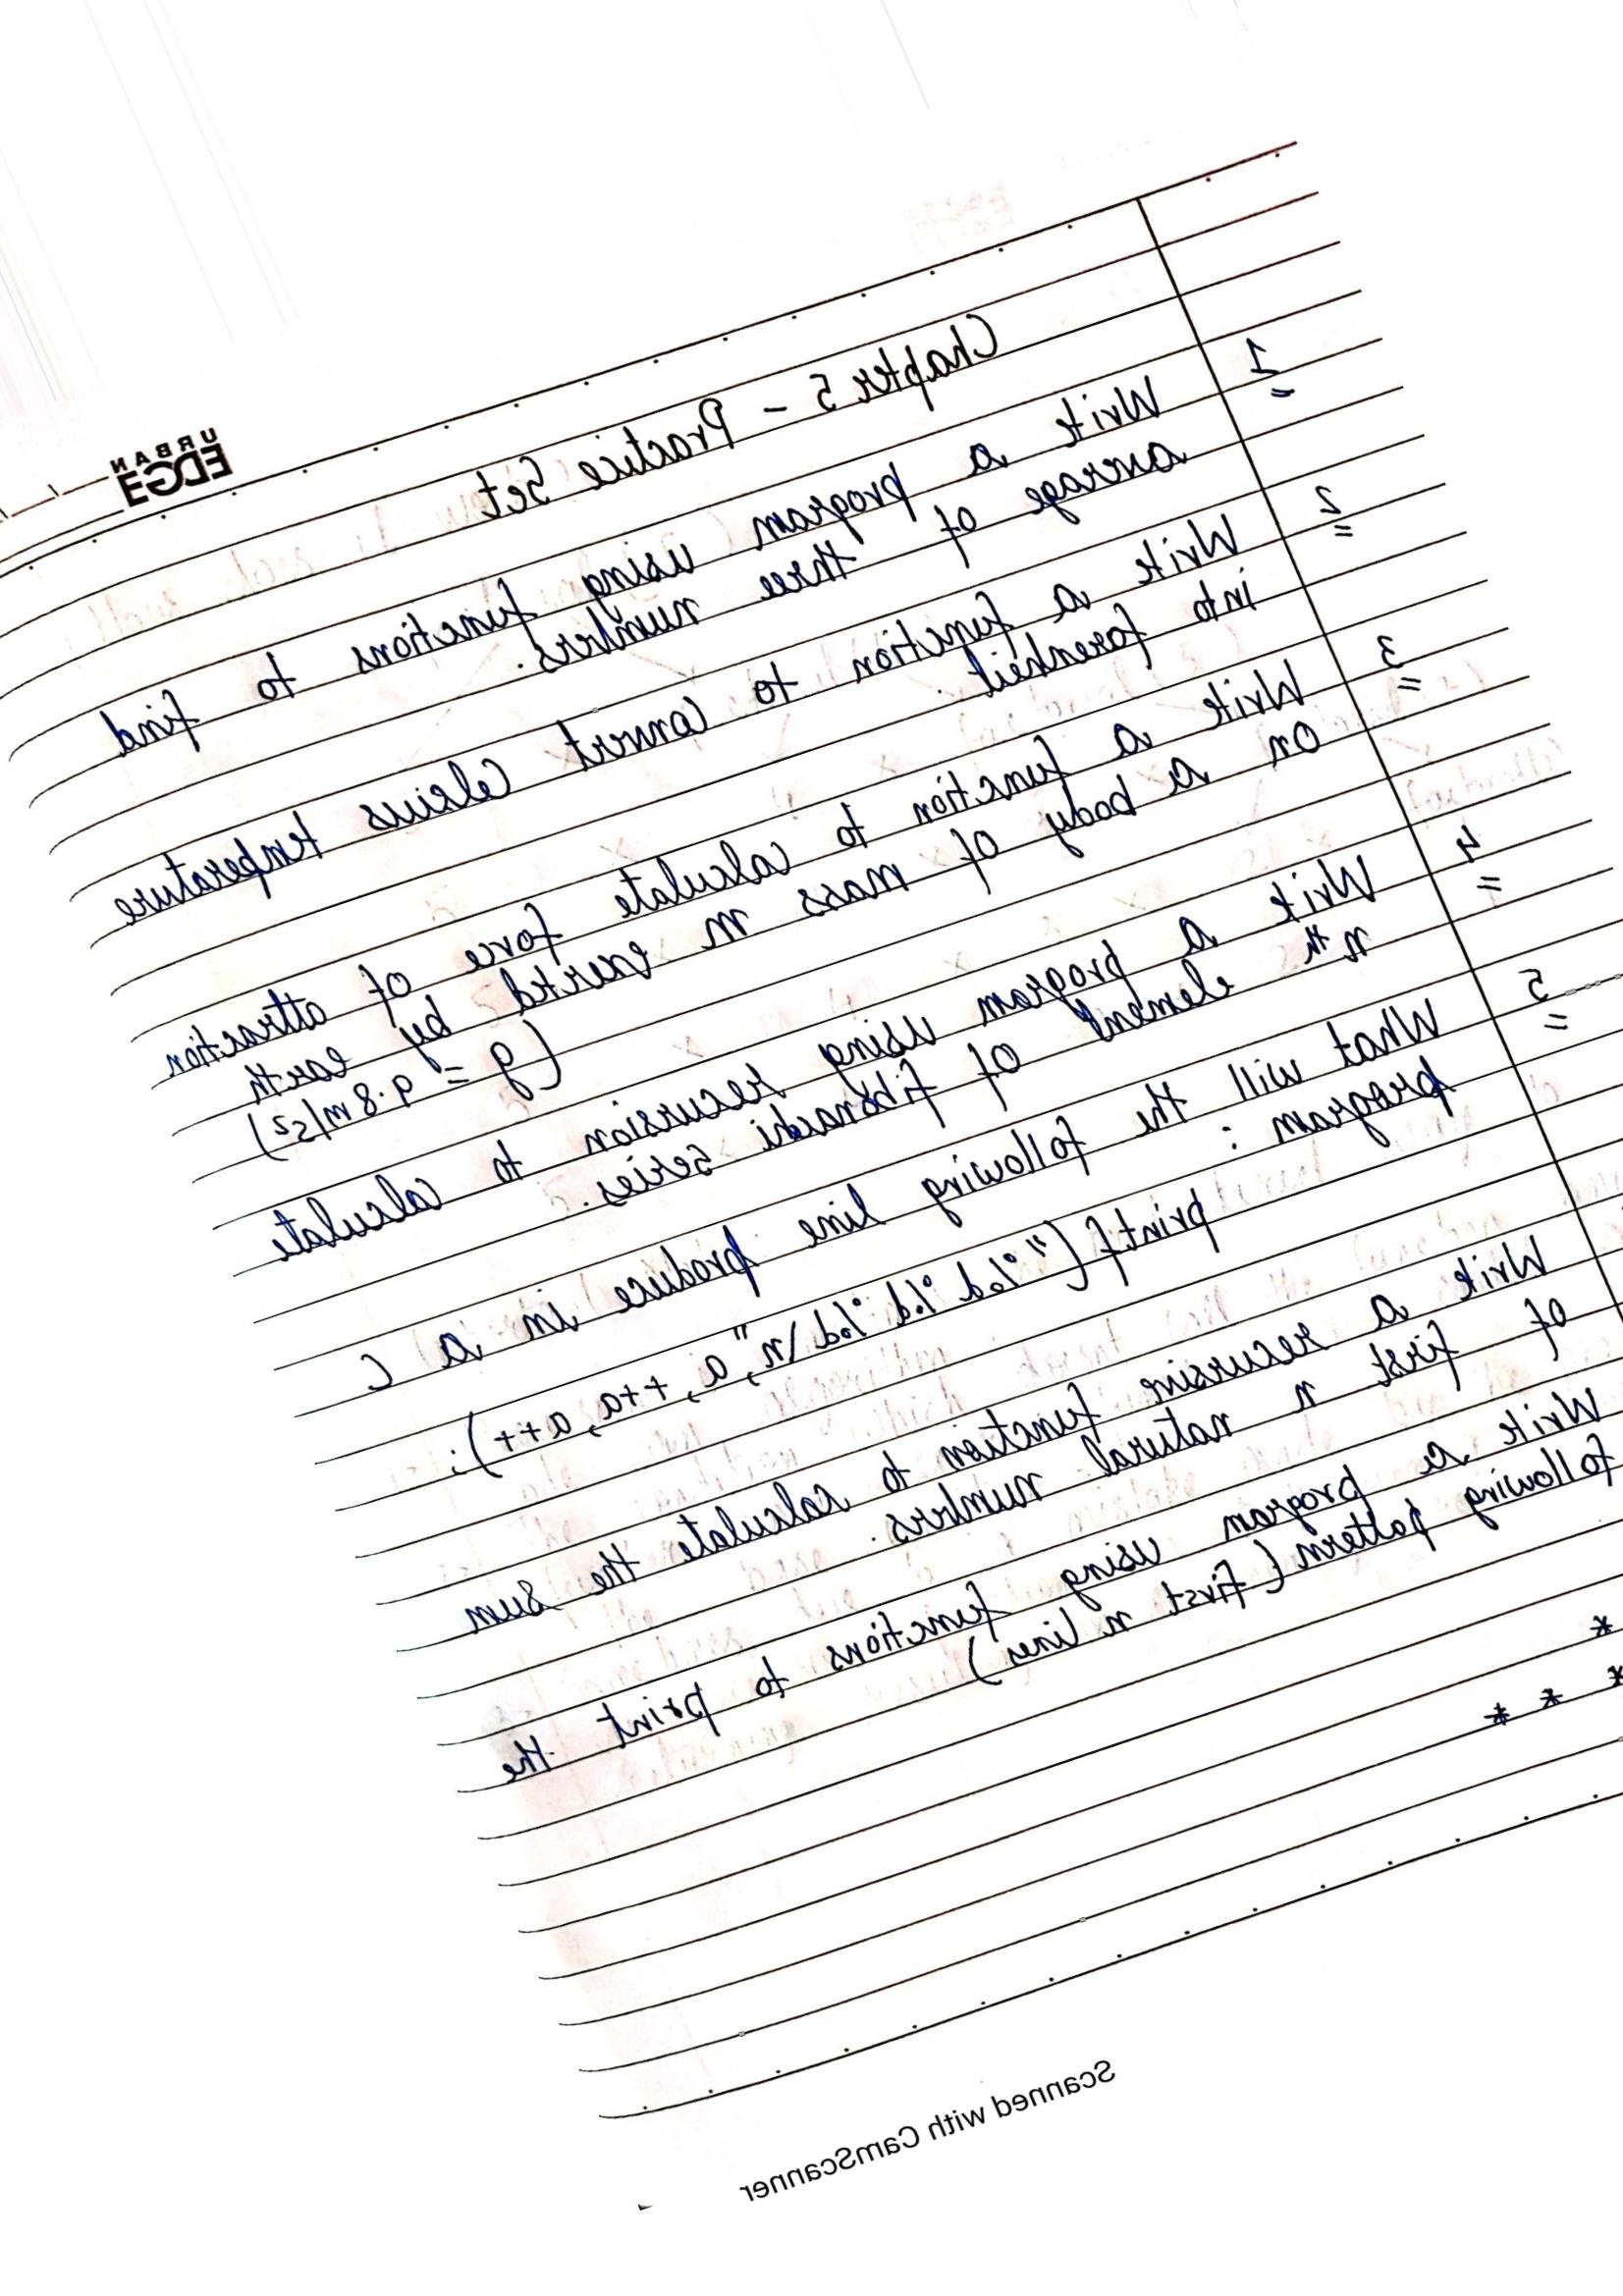 URBAN
EDGE
Chapter 5 - Practice Set
1
Write a program using functions to find
average of three numbers.
2
Write a function to convert Celsius temperature
into farenheit.
3
Write a function to calculate force of attraction
on a body of mass m exerted by earth
(g = 9.8 m/s²)
4
Write a program using recursion to calculate
nth element of fibonacchi series.
5
What will the following line produce in a C
program :
printf ("%d %d %d \n", a, ++a, a++);
Write a recursive function to calculate the sum
of first n natural numbers.
Write a program using functions to print the
following pattern (first n lines)
*
* * *
Scanned with CamScanner